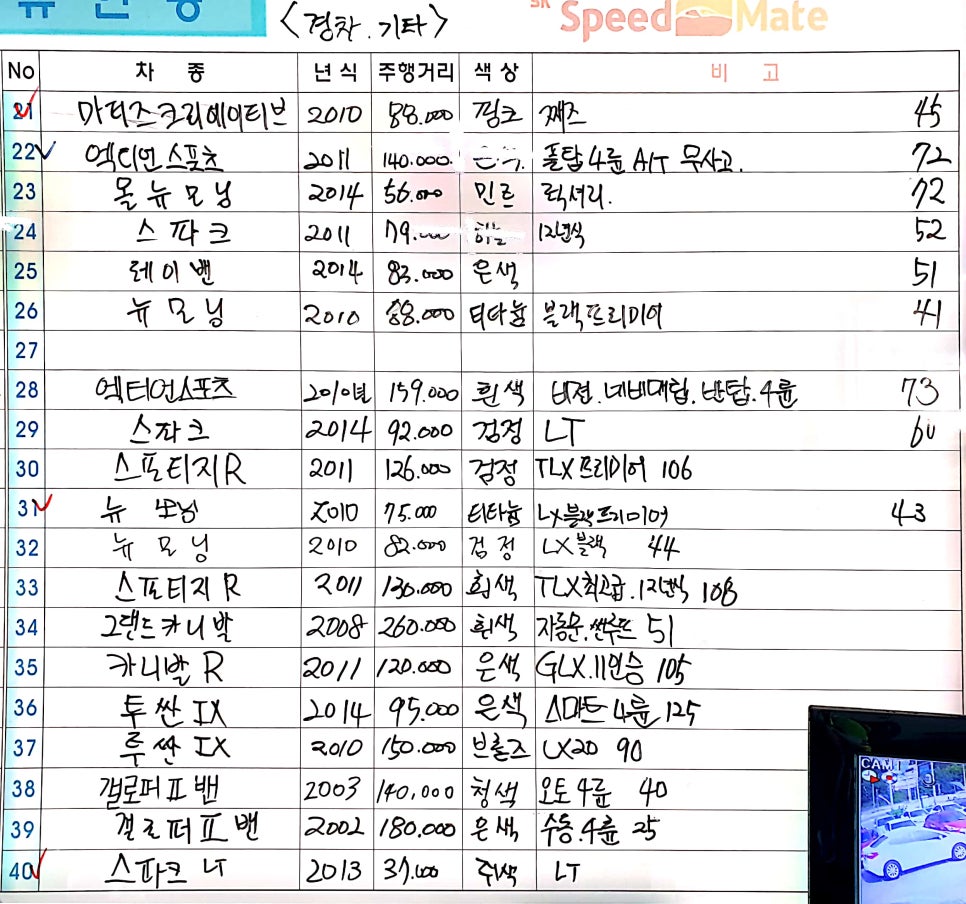 <경차.기타>
SK SpeedMate
No 차 종 년 식 주행거리 색 상 비 고
21 마티즈크리에이티브 2010 88.000 핑크 째즈 45
22 엑티언스포츠 2011 140.000 은색. 폴탑4륜 A/T 무사고. 72
23 올뉴모닝 2014 56.000 민트 럭셔리. 72
24 스파크 2011 79.000 12년식 52
25 레이밴 2014 83.000 은색 51
26 뉴모닝 2010 88.000 티타늄 블랙프리미어 41
27
28 엑티언스포츠 2010년 159.000 흰색 비젼.네비매립.반탑.4륜 73
29 스파크 2014 92.000 검정 LT 60
30 스포티지R 2011 126.000 검정 TLX프리미어 106
31 뉴 모닝 2010 75.000 티타늄 LX블랙프리미어 43
32 뉴모닝 2010 82.000 검정 LX블랙 44
33 스포티지R 2011 130.000 흰색 TLX최고급.12년식 108
34 그랜드카니발 2008 260.000 흰색 자동문.썬루프 51
35 카니발R 2011 120.000 은색 GLX.11인승 105
36 투싼IX 2014 95.000 은색 스마트4륜 125
37 투싼IX 2010 150.000 브론즈 LX20 90
38 갤로퍼II밴 2003 140,000 청색 오토4륜 40
39 갤로퍼II밴 2002 180.000 은색 수동.4륜 25
40 스파크 LT 2013 37.000 쥐색 LT
CAM1